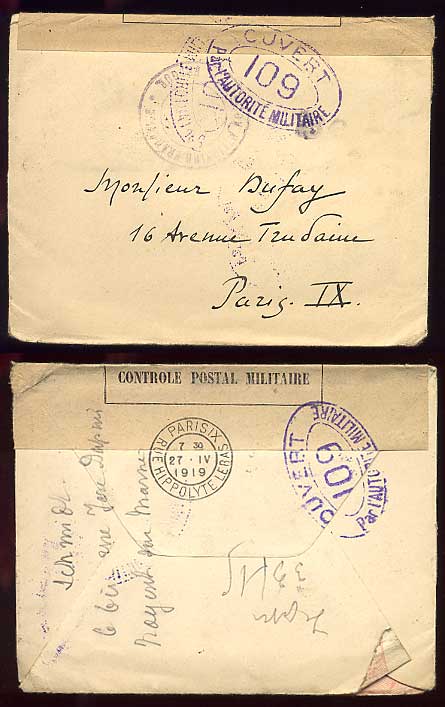 OUVERT
109
Par L'AUTORITÉ MILITAIRE
Monsieur Dufay
16 Avenue Trudaine
Paris. IX.
CONTROLE POSTAL MILITAIRE
PARIS IX
7 30
27 · IV
1919
RUE HIPPOLYTE LEBAS
OUVERT
109
Par L'AUTORITÉ MILITAIRE
Schmidt
6 bis rue
Nogent sur Marne